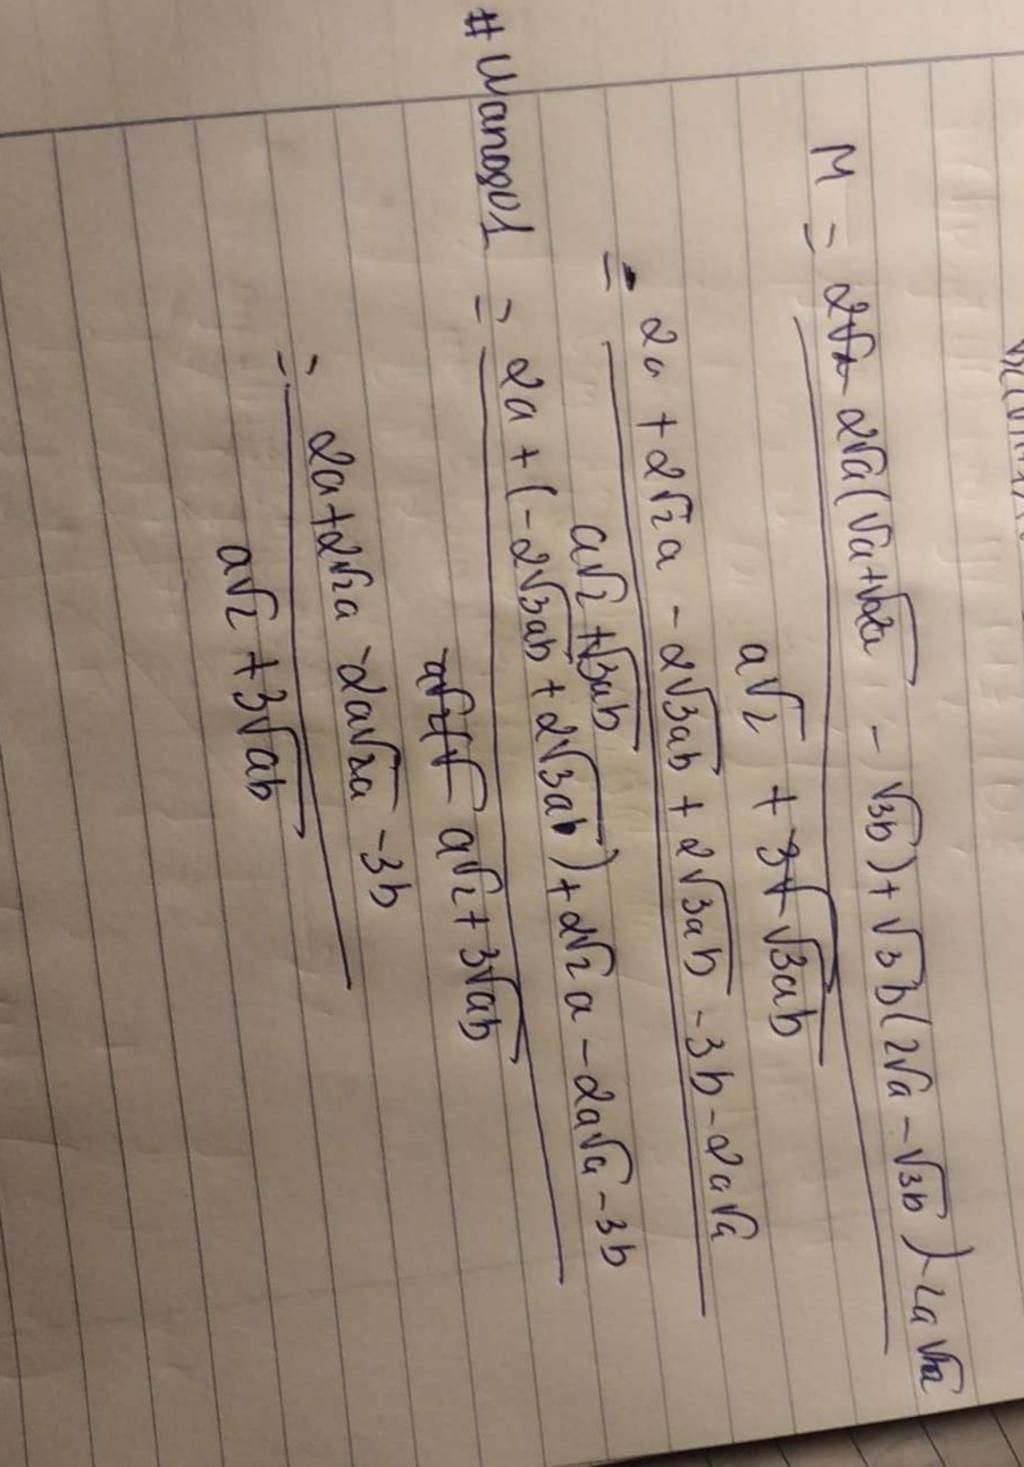 M = 2√a(√a+√2a - √3b) + √3b(2√a - √3b) - 2a√a
a√2 + √3ab
= 2a + 2√2a - 2√3ab + 2√3ab - 3b - 2a√a
a√2 + √3ab
#Wanogo1 = 2a + (-2√3ab + 2√3ab) + 2√2a - 2a√a - 3b
a√2 + 3√ab
= 2a + 2√2a - 2a√2a - 3b
a√2 + 3√ab